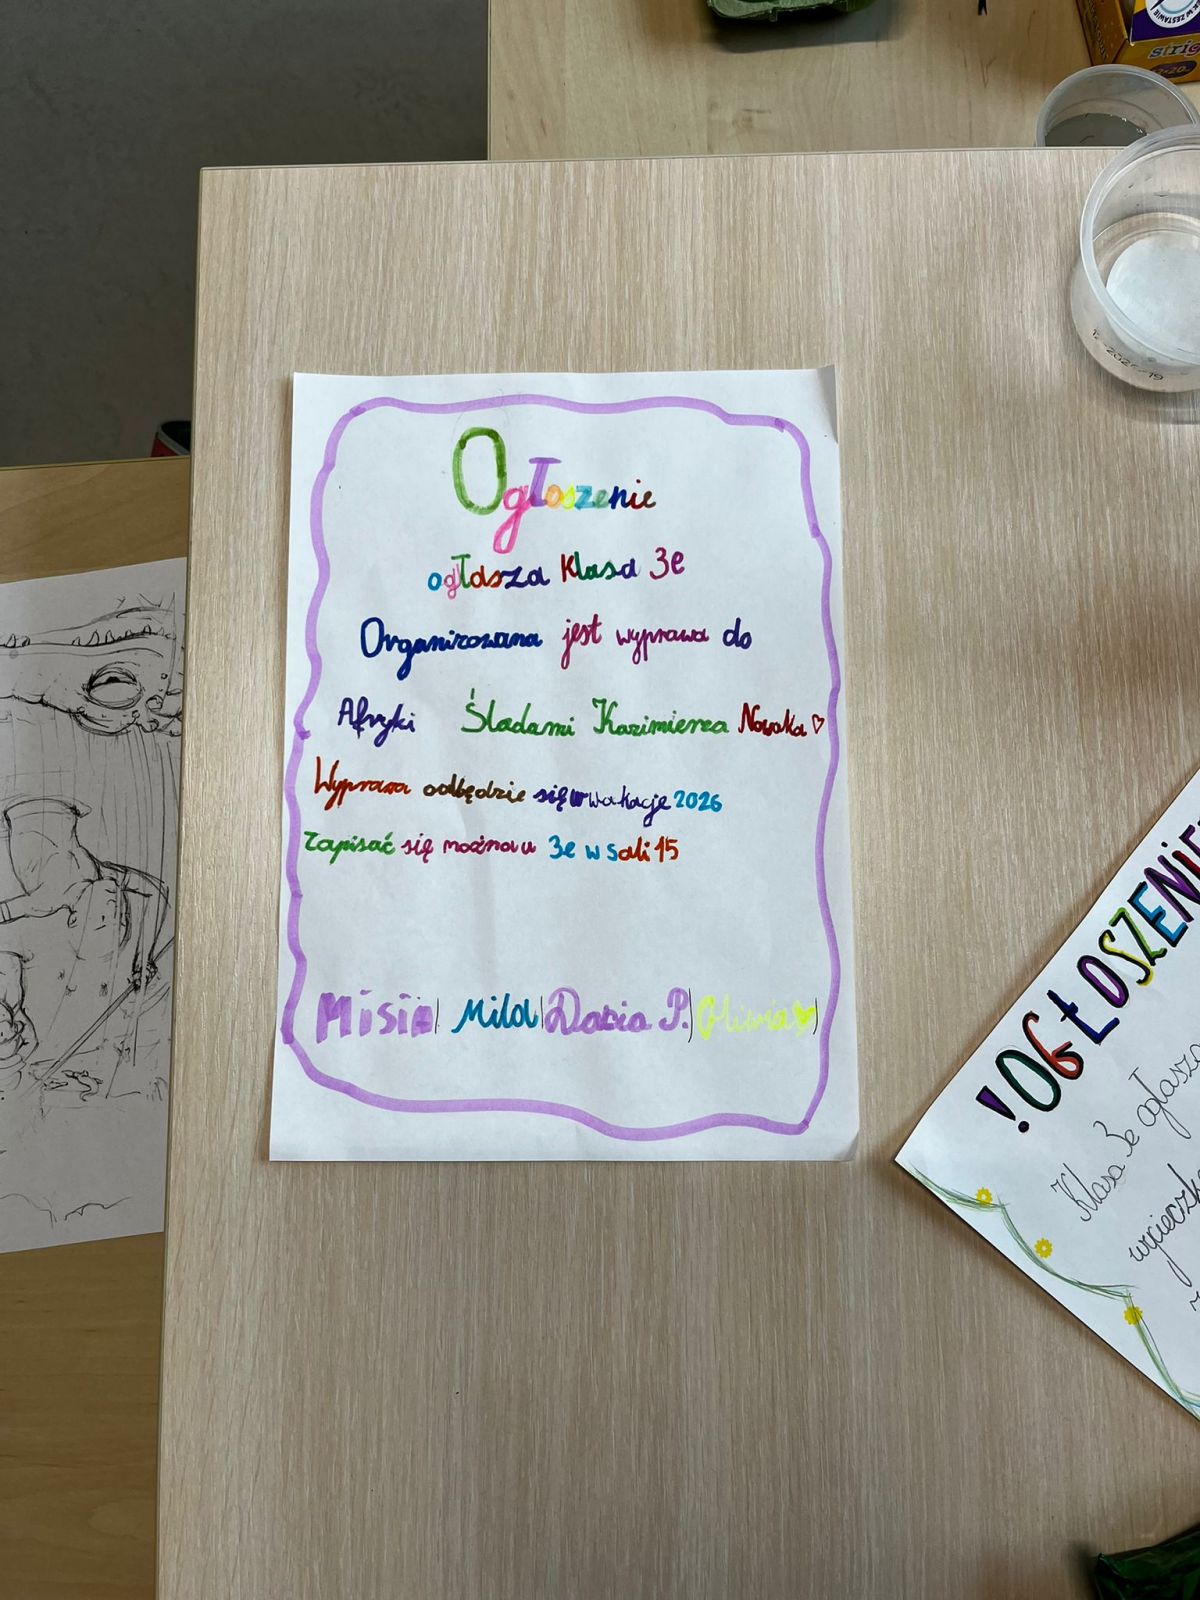 Ogłoszenie
ogłasza klasa 3e
Organizowana jest wyprawa do
Afryki Śladami Kazimierza Nowaka
Wyprawa odbędzie się w wakacje 2026
Zapisać się można u 3e w sali 15
Misia Mila Daria P. Oliwia
!OGŁOSZENIE
Klasa 3e ogłasza
wycieczkę
W ZESTAWIE